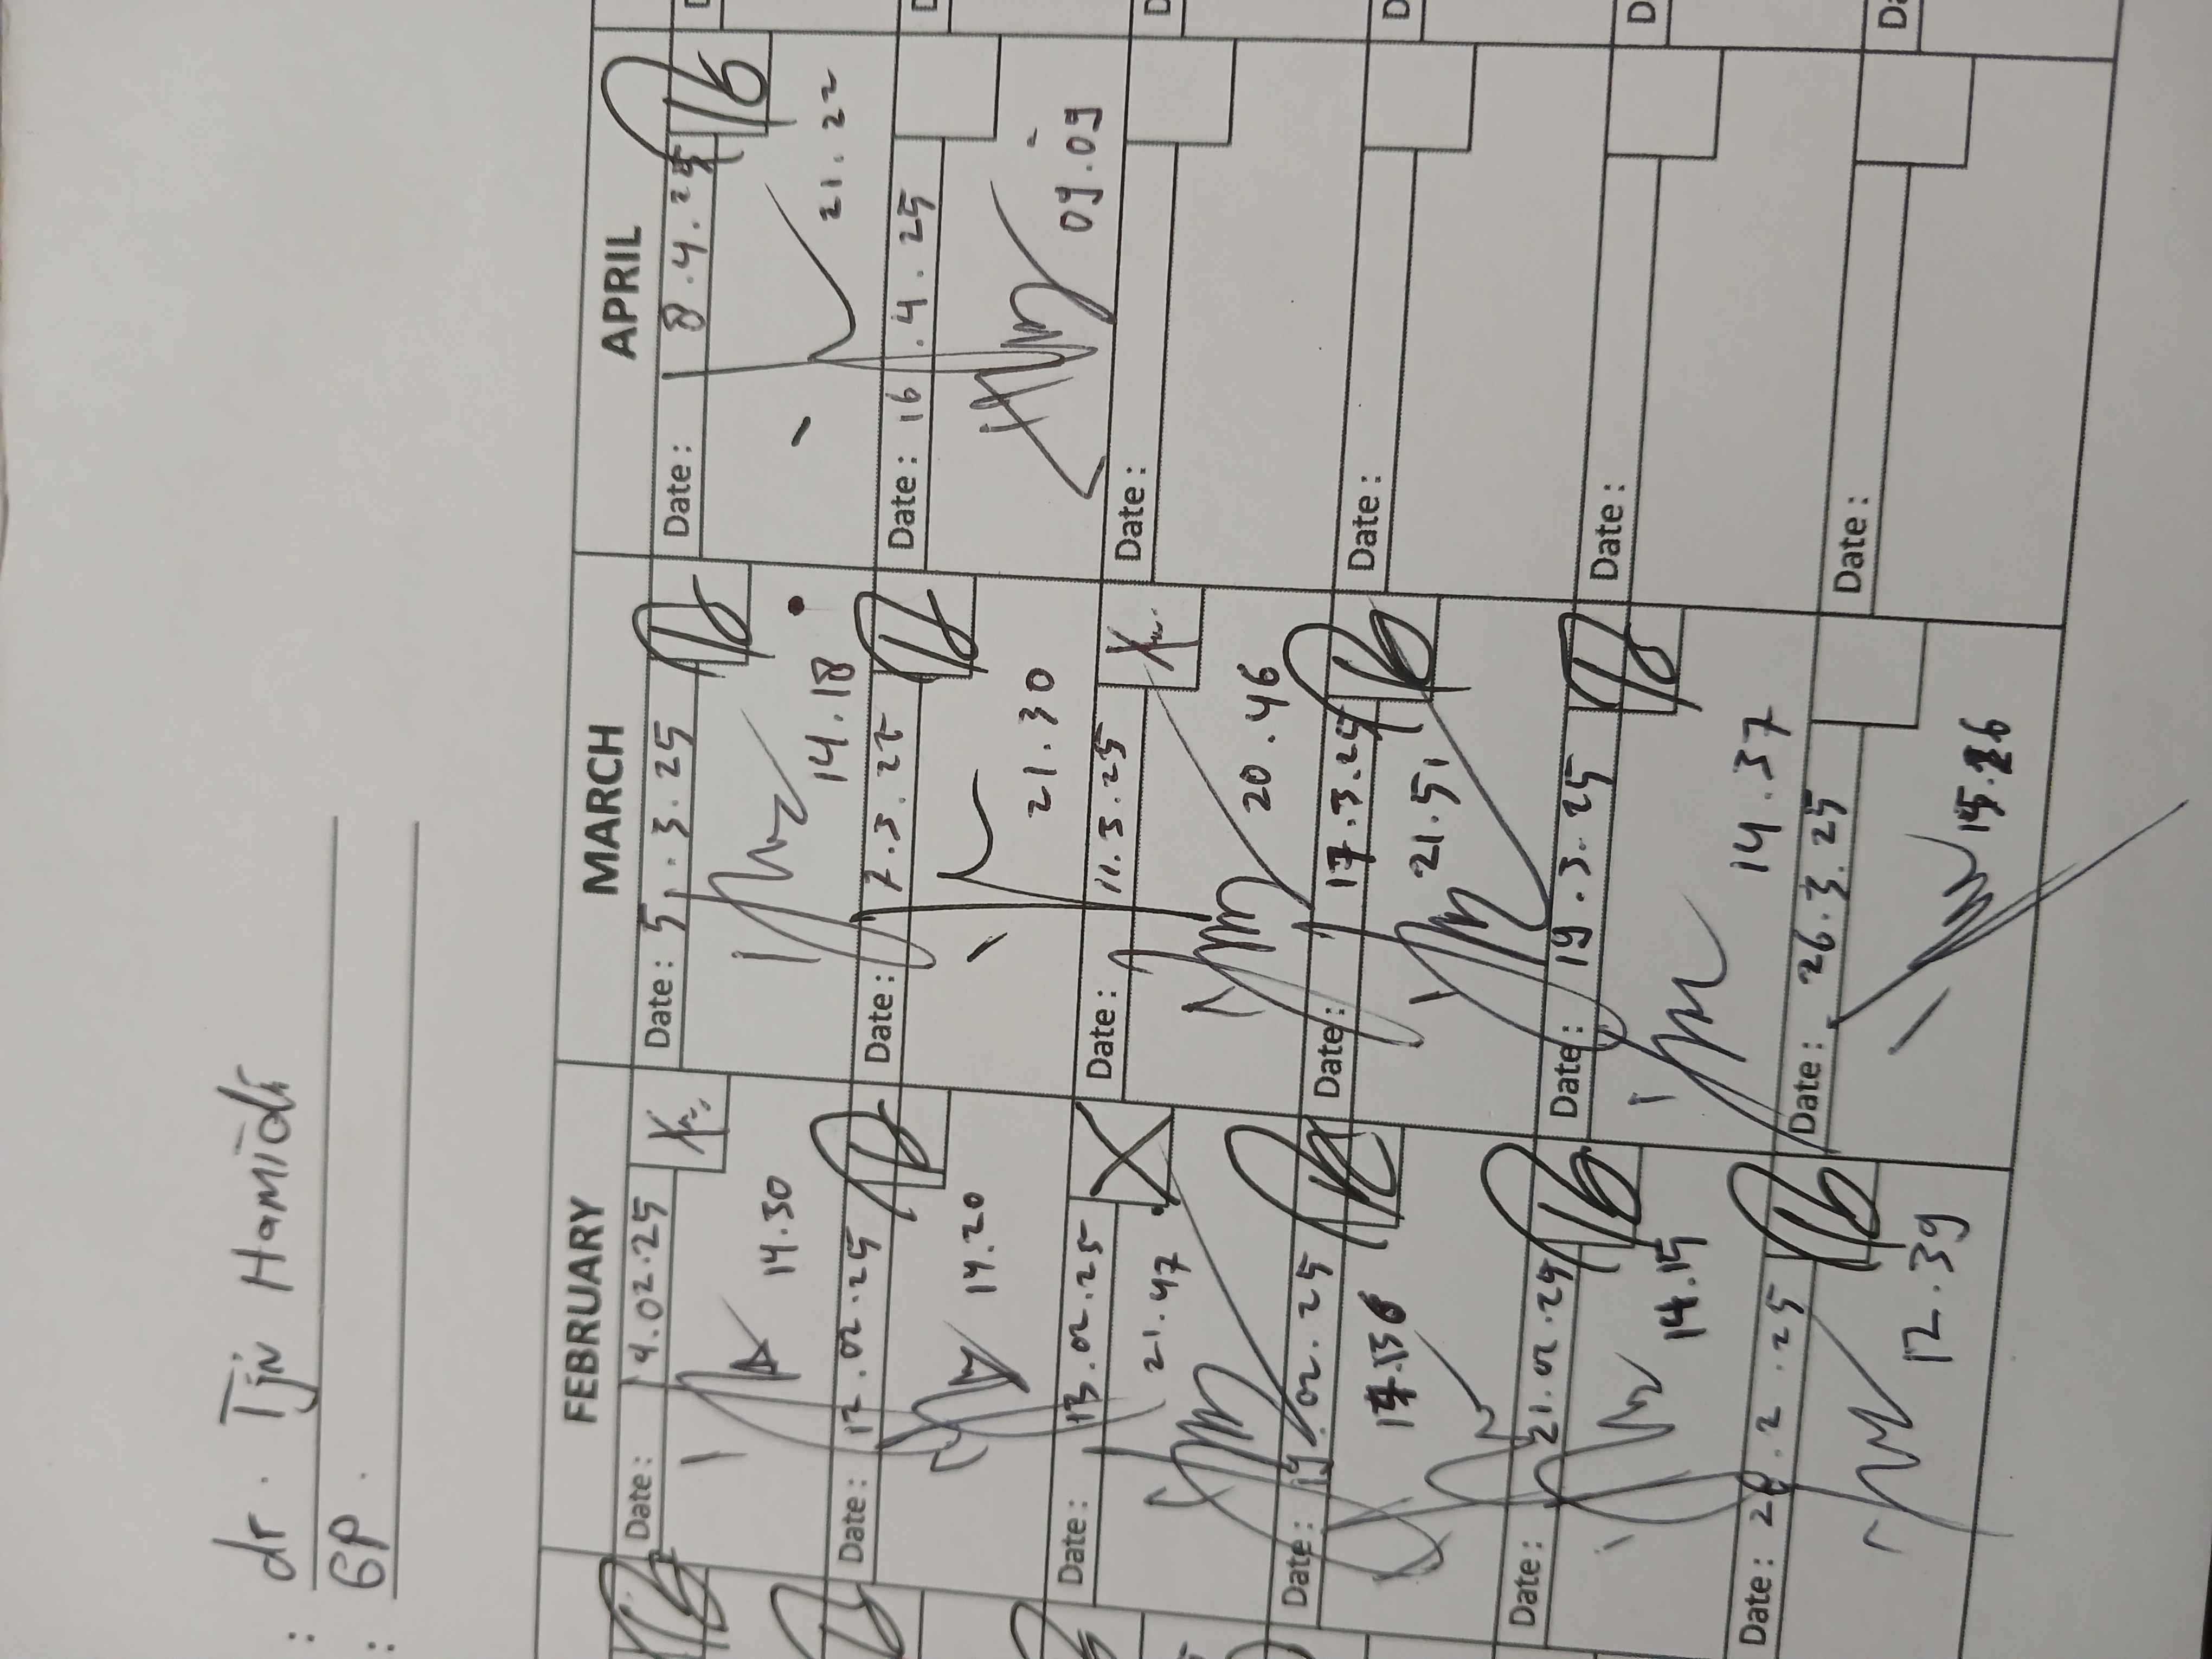 : dr. Tjin Hamidi
: GP.
FEBRUARY MARCH APRIL
Date: 4.02.25 Date: 5.3.25 Date: 8.4.25
14.30 14.18 21.22
Date: 12.02.25 Date: 7.3.25 Date: 16.4.25
14.20 21.30 09.09
Date: 13.02.25 Date: 11.3.25 Date:
21.47 20.46
Date: 19.02.25 Date: 17.3.25 Date:
21.51
Date: 21.02.25 Date: 19.3.25 Date:
14.15 14.37
Date: 28.2.25 Date: 26.3.25 Date:
12.39